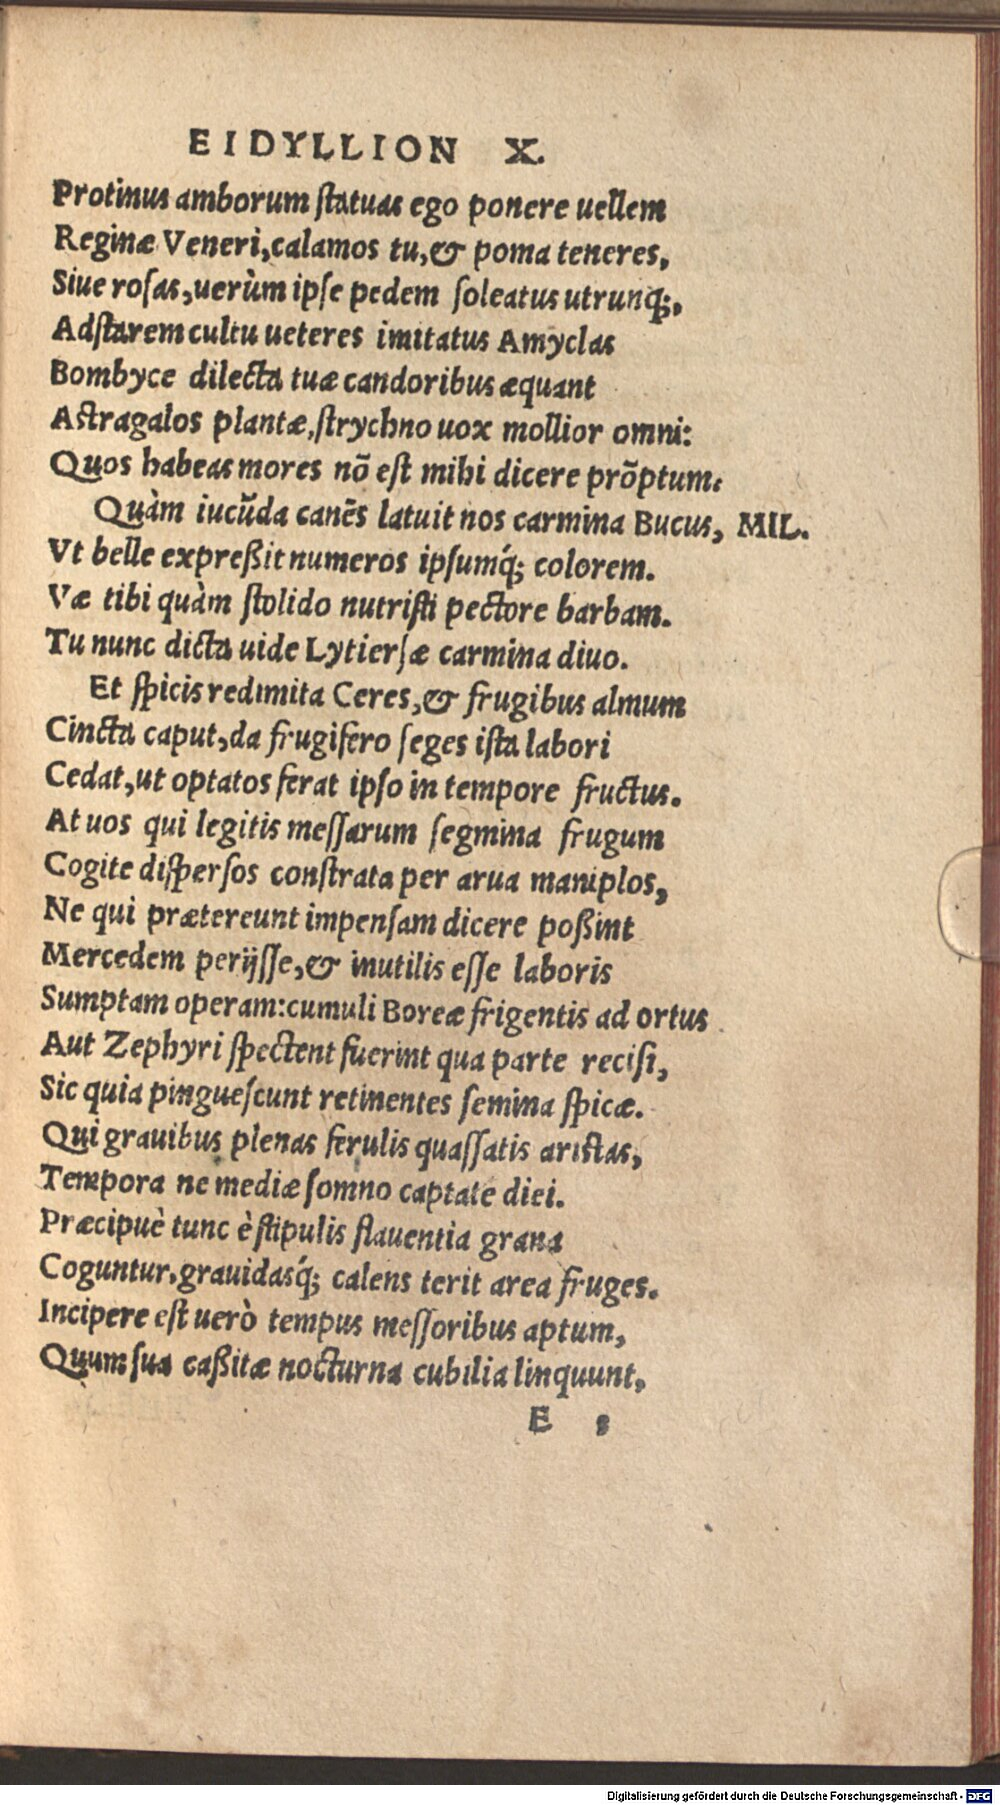 EIDYLLION X.
Protinus amborum ſtatuas ego ponere uellem
Reginæ Veneri, calamos tu, & poma teneres,
Siue roſas, uerùm ipſe pedem ſoleatus utrunq;,
Adſtarem cultu ueteres imitatus Amyclas
Bombyce dilecta tuæ candoribus æquant
Aſtragalos plantæ, ſtrychno uox mollior omni:
Quos habeas mores nõ eſt mihi dicere prõptum.
Quàm iucũda canẽs latuit nos carmina Bucus, MIL.
Vt belle expreßit numeros ipſumq́; colorem.
Væ tibi quàm ſtolido nutriſti pectore barbam.
Tu nunc dicta uide Lytierſæ carmina diuo.
Et ſpicis redimita Ceres, & frugibus almum
Cincta caput, da frugifero ſeges iſta labori
Cedat, ut optatos ferat ipſo in tempore fructus.
At uos qui legitis meſſarum ſegmina frugum
Cogite diſperſos conſtrata per arua maniplos,
Ne qui prætereunt impenſam dicere poßint
Mercedem perijſſe, & inutilis eſſe laboris
Sumptam operam: cumuli Boreæ frigentis ad ortus
Aut Zephyri ſpectent fuerint qua parte reciſi,
Sic quia pingueſcunt retinentes ſemina ſpicæ.
Qui grauibus plenas ferulis quaſſatis ariſtas,
Tempora ne mediæ ſomno captate diei.
Præcipuè tunc è ſtipulis flauentia grana
Coguntur, grauidasq́; calens terit area fruges.
Incipere eſt uerò tempus meſſoribus aptum,
Quum ſua caßitæ nocturna cubilia linquunt,
E
Digitalisierung gefördert durch die Deutsche Forschungsgemeinschaft - DFG